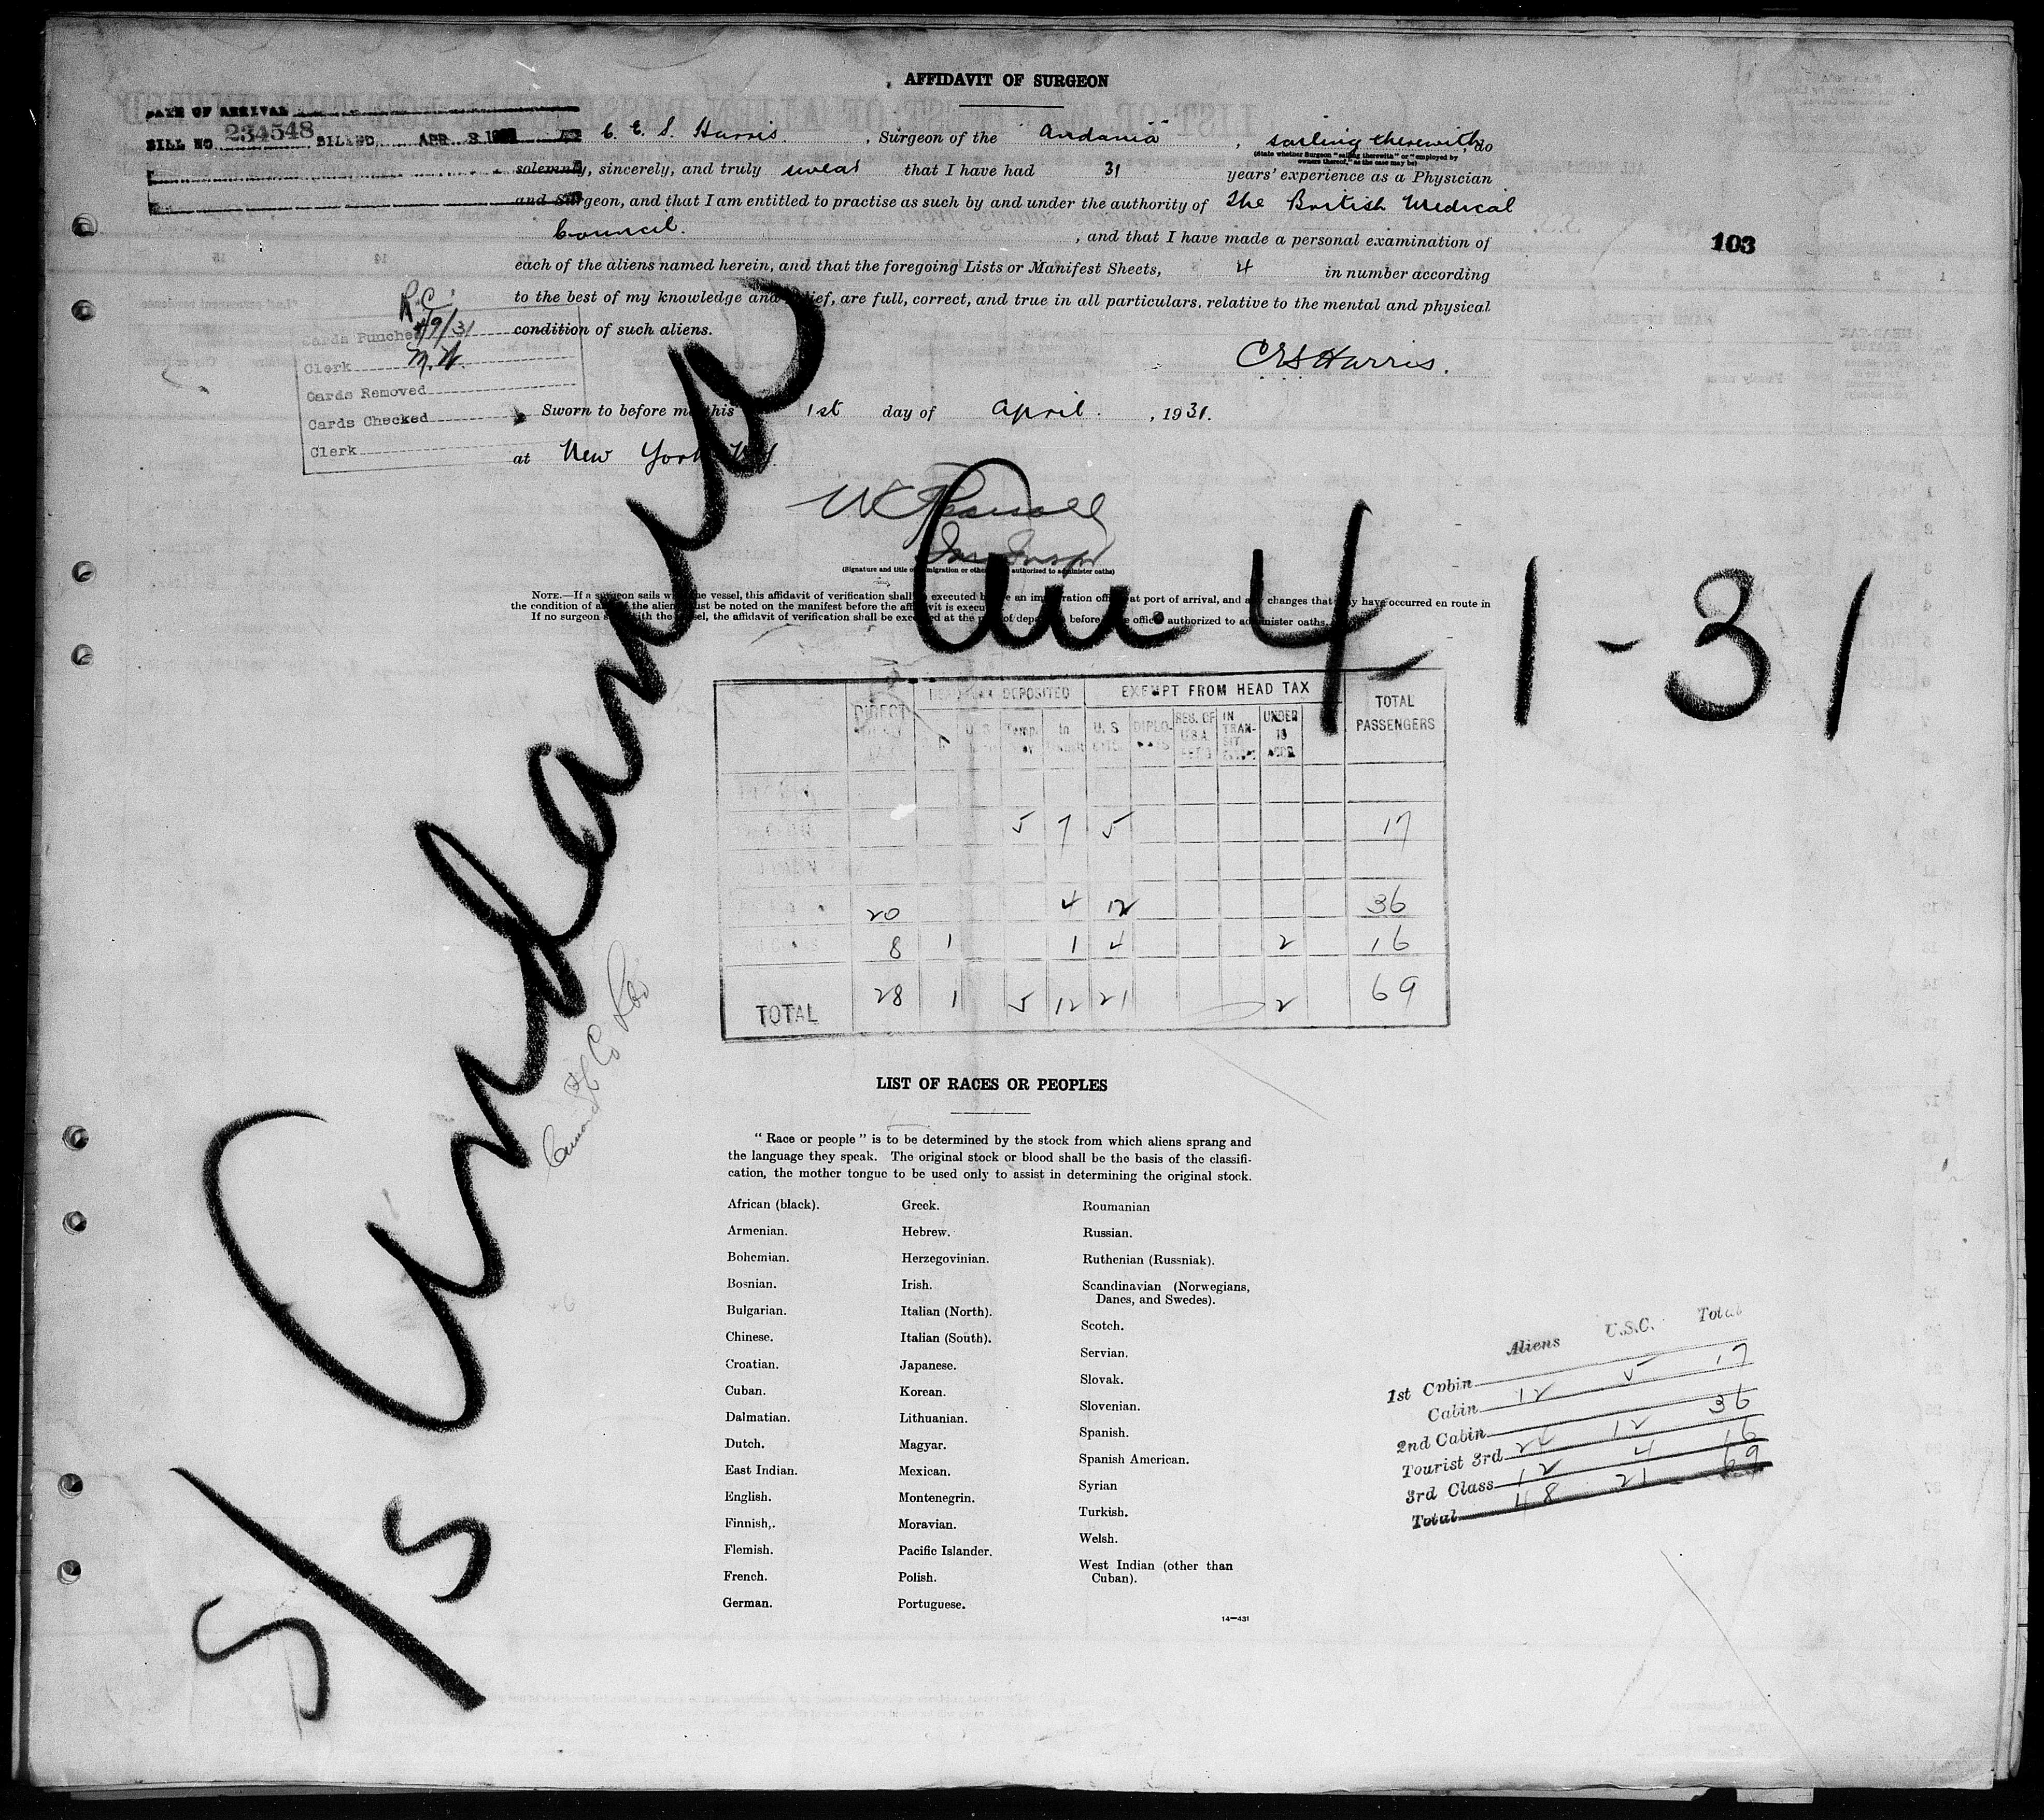 AFFIDAVIT OF SURGEON
DATE OF ARRIVAL
BILL NO. 234548 BILLED APR 3 19
I, C. E. S. Harris, Surgeon of the "Andania", sailing therewith, do
(State whether Surgeon "sailing therewith" or "employed by
owners thereof," as the case may be)
solemnly, sincerely, and truly swear that I have had 31 years' experience as a Physician
and Surgeon, and that I am entitled to practise as such by and under the authority of The British Medical
Council. , and that I have made a personal examination of
103
each of the aliens named herein, and that the foregoing Lists or Manifest Sheets, 4 in number according
to the best of my knowledge and belief, are full, correct, and true in all particulars, relative to the mental and physical
condition of such aliens.
R.C.
Cards Punched 4/9/31
Clerk M.W.
Cards Removed
Cards Checked
Clerk
CES Harris.
Sworn to before me this 1st day of April, 1931.
at New York N.Y.
(Signature and title of immigration or other officer authorized to administer oaths)
NOTE.—If a surgeon sails with the vessel, this affidavit of verification shall be executed before an immigration officer at port of arrival, and any changes that may have occurred en route in
the condition of any of the aliens must be noted on the manifest before the affidavit is executed.
If no surgeon sails with the vessel, the affidavit of verification shall be executed at the port of departure before some officer authorized to administer oaths.
S/S Andania
Arr. 4-1-31
DIRECT HEAD TAX
HEAD TAX DEPOSITED
EXEMPT FROM HEAD TAX
TOTAL PASSENGERS
U. S. DIPLO- RES. OF U.S.A. IN TRAN- SIT UNDER 16 ACCP.
5 7 5 17
20 4 12 36
8 1 1 4 2 16
TOTAL 28 1 5 12 21 2 69
LIST OF RACES OR PEOPLES
"Race or people" is to be determined by the stock from which aliens sprang and
the language they speak. The original stock or blood shall be the basis of the classifi-
cation, the mother tongue to be used only to assist in determining the original stock.
African (black).
Armenian.
Bohemian.
Bosnian.
Bulgarian.
Chinese.
Croatian.
Cuban.
Dalmatian.
Dutch.
East Indian.
English.
Finnish,.
Flemish.
French.
German.
Greek.
Hebrew.
Herzegovinian.
Irish.
Italian (North).
Italian (South).
Japanese.
Korean.
Lithuanian.
Magyar.
Mexican.
Montenegrin.
Moravian.
Pacific Islander.
Polish.
Portuguese.
Roumanian
Russian.
Ruthenian (Russniak).
Scandinavian (Norwegians,
Danes, and Swedes).
Scotch.
Servian.
Slovak.
Slovenian.
Spanish.
Spanish American.
Syrian
Turkish.
Welsh.
West Indian (other than
Cuban).
14—431
Aliens U.S.C. Total
1st Cabin
Cabin 12 5 17
2nd Cabin
Tourist 3rd 24 12 36
3rd Class 12 4 16
Total 48 21 69